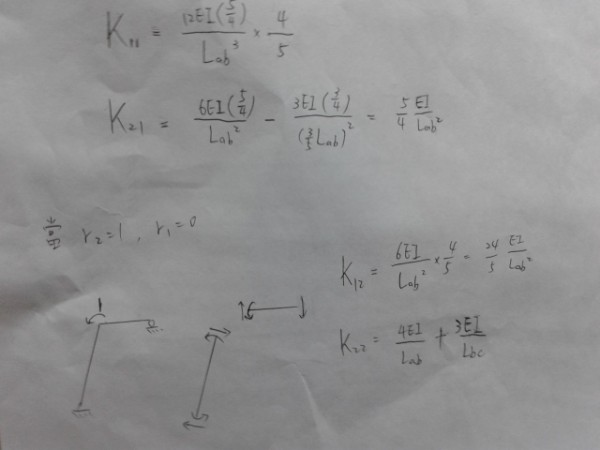 K₁₁ = 12EI(5/4) / Lab³ × 4/5
K₂₁ = 6EI(5/4) / Lab² - 3EI(3/4) / (3/5 Lab)² = 5/4 EI/Lab²
當 r₂=1 , r₁=0
K₁₂ = 6EI / Lab² × 4/5 = 24/5 EI/Lab²
1
K₂₂ = 4EI / Lab + 3EI / Lbc